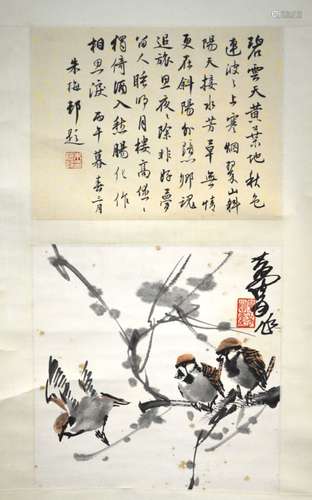 碧雲天黃葉地秋色
連波々上寒烟翠山斜
陽天接水芳草無情
更在斜陽外黯鄉魂
追旅思夜々除非好夢
留人睡明月樓高休
獨倚酒入愁腸化作
相思淚 丙午暮春二月
朱梅邨題